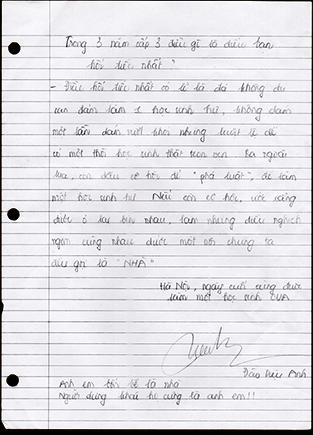 Trong 3 năm cấp 3 điều gì là điều bạn
hối tiếc nhất?
- Điều hối tiếc nhất có lẽ là đã không đủ
can đảm làm 1 học sinh hư, không dám
một lần dám vượt khỏi những luật lệ để
có một thời học sinh thật trọn vẹn. Ra ngoài
kia, còn đâu cơ hội để "phá luật", để làm
một học sinh hư. Nếu còn cơ hội, ước rằng
được ở lại bên nhau, làm những điều nghịch
ngợm cùng nhau dưới một nơi chúng ta
đều gọi là "NHÀ"
Hà Nội, ngày cuối cùng được
làm một học sinh
Đào Anh
Anh em thì bể là nhà
Người dưng khác họ cũng là anh em!!